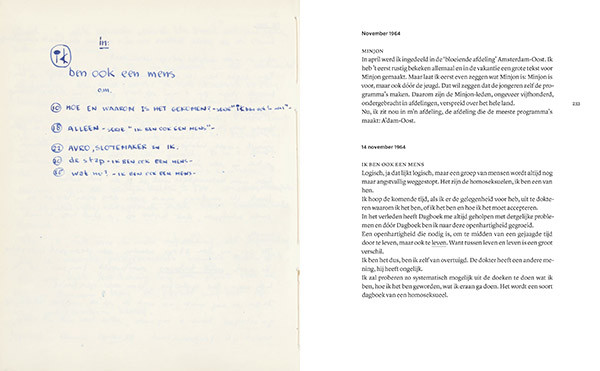 in:
ik
ben ook een mens
o.m.
HOE EN WAAROM IS HET GEKOMEN? - VOOR "IK BEN OOK 'N MENS" -
ALLEEN - VOOR "IK BEN OOK EEN MENS" -
AVRO, SLOTEMAKER EN IK.
de stap - IK BEN OOK EEN MENS -
wat nu? - IK BEN OOK EEN MENS -
November 1964
MINJON
In april werd ik ingedeeld in de 'bloeiende afdeling' Amsterdam-Oost. Ik
heb 't eerst rustig bekeken allemaal en in de vakantie een grote tekst voor
Minjon gemaakt. Maar laat ik eerst even zeggen wat Minjon is: Minjon is
voor, maar ook dóór de jeugd. Dat wil zeggen dat de jongeren zelf de pro-
gramma's maken. Daarom zijn de Minjon-leden, ongeveer vijfhonderd,
ondergebracht in afdelingen, verspreid over het hele land.
Nu, ik zit nou in m'n afdeling, de afdeling die de meeste programma's
maakt: A'dam-Oost.
14 november 1964
IK BEN OOK EEN MENS
Logisch, ja dat lijkt logisch, maar een groep van mensen wordt altijd nog
maar angstvallig weggestopt. Het zijn de homoseksuelen, ik ben een van
hen.
Ik hoop de komende tijd, als ik er de gelegenheid voor heb, uit te dokte-
ren waarom ik het ben, of ik het ben en hoe ik het moet accepteren.
In het verleden heeft Dagboek me altijd geholpen met dergelijke proble-
men en dóór Dagboek ben ik naar deze openhartigheid gegroeid.
Een openhartigheid die nodig is, om te midden van een gejaagde tijd
door te leven, maar ook te leven. Want tussen leven en leven is een groot
verschil.
Ik ben het dus, ben ik zelf van overtuigd. De dokter heeft een andere me-
ning, hij heeft ongelijk.
Ik zal proberen zo systematisch mogelijk uit de doeken te doen wat ik
ben, hoe ik het ben geworden, wat ik eraan ga doen. Het wordt een soort
dagboek van een homoseksueel.